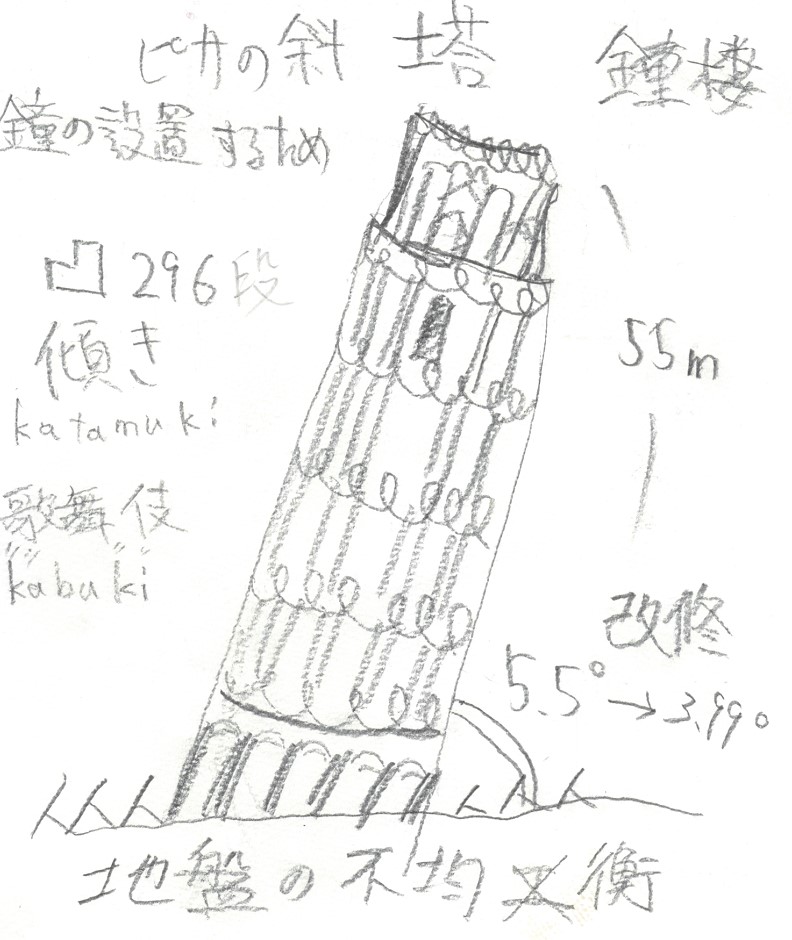 ピサの斜塔
鐘楼
鐘の設置するため
55m
296段
傾き
katamuki
歌舞伎
kabuki
改修
5.5°→3.99°
地盤の不均衡